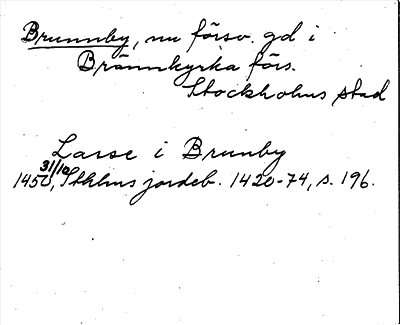 Brunnby, nu försv. gd i
Brännkyrka förs.
Stockholms stad
Larse i Brunby
31/10
1450, Sthlms jordeb. 1420-74, s. 196.